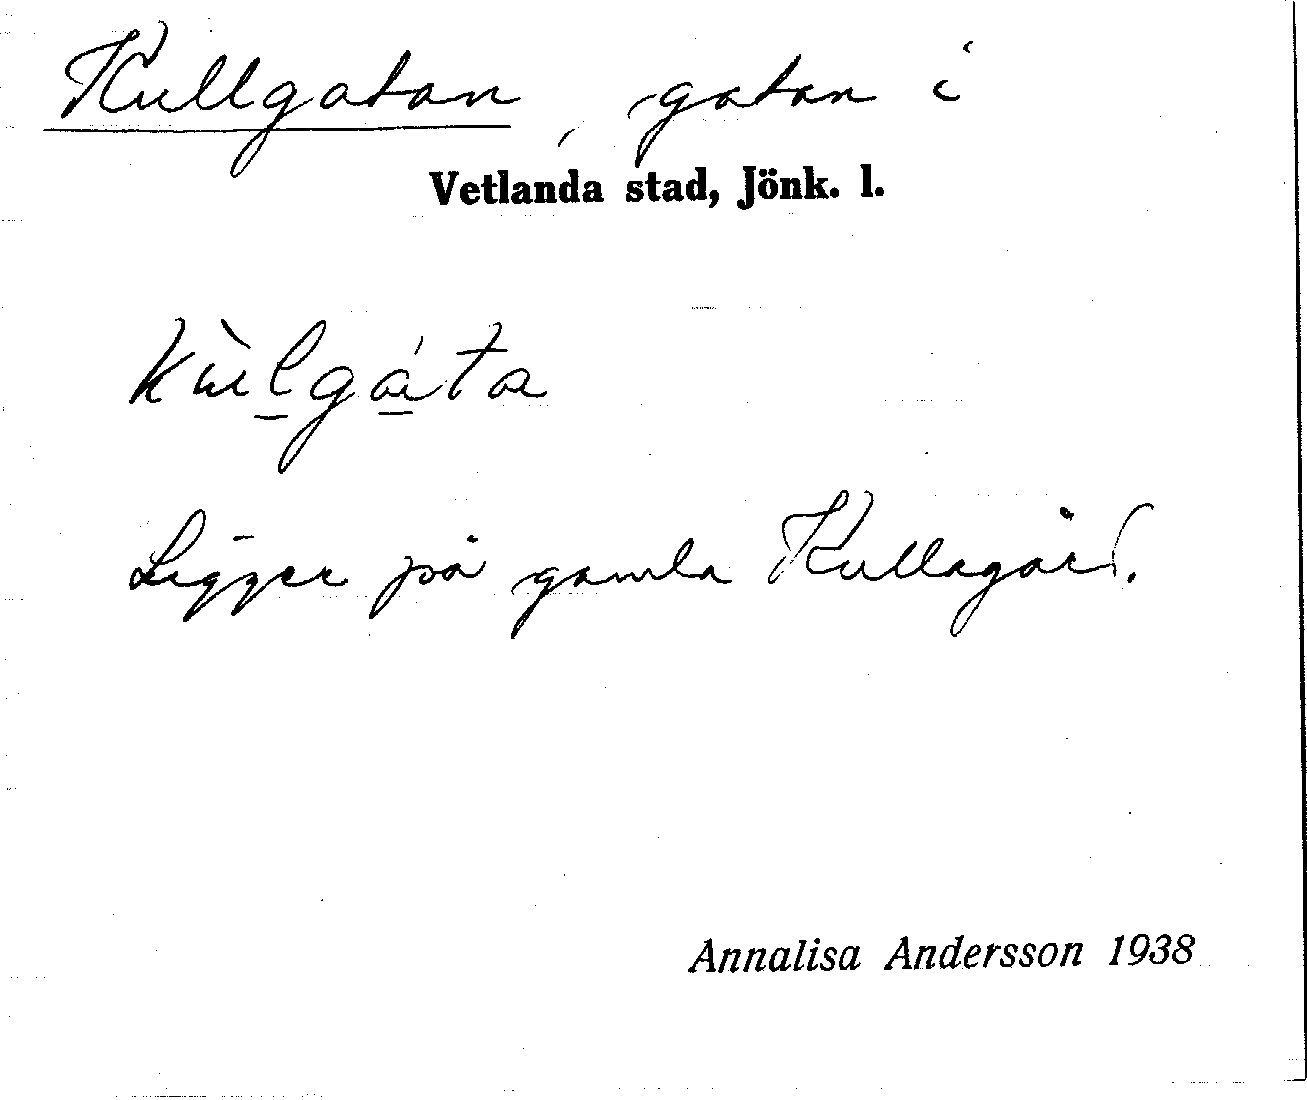 Kullgatan, gatan i
Vetlanda stad, Jönk. l.
kùl̲gá̲ta
Ligger på gamla Kullagård.
Annalisa Andersson 1938